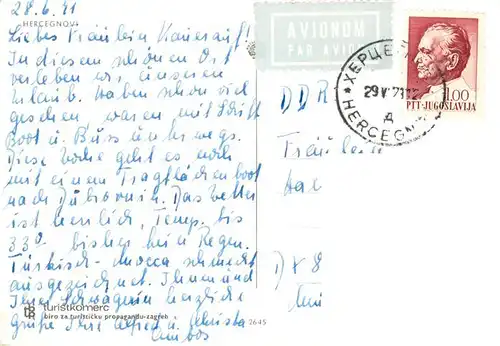 28.6.71
HERCEGNOVI
Liebes Fräulein
In diesem schönen Ort
verleben wir unseren
Urlaub. Haben schon viel
gesehen waren mit Schiff
Boot u. Buss unterwegs.
Diese Woche geht es noch
mit einem Tragflächenboot
nach Dubrovnik. Das Wetter
ist herrlich, Temp. bis
33° bisher kein Regen.
Türkisch-mocca schmeckt
ausgezeichnet. Ihnen und
Ihrer Schwägerin herzliche
Grüße Ihre Alfred u. Christa
turistkomerc
biro za turističku propagandu-zagreb
2645
AVIONOM
PAR AVION
ХЕРЦЕГ
HERCEGNOVI
1.00
PTT-JUGOSLAVIJA
DDR
Fräulein